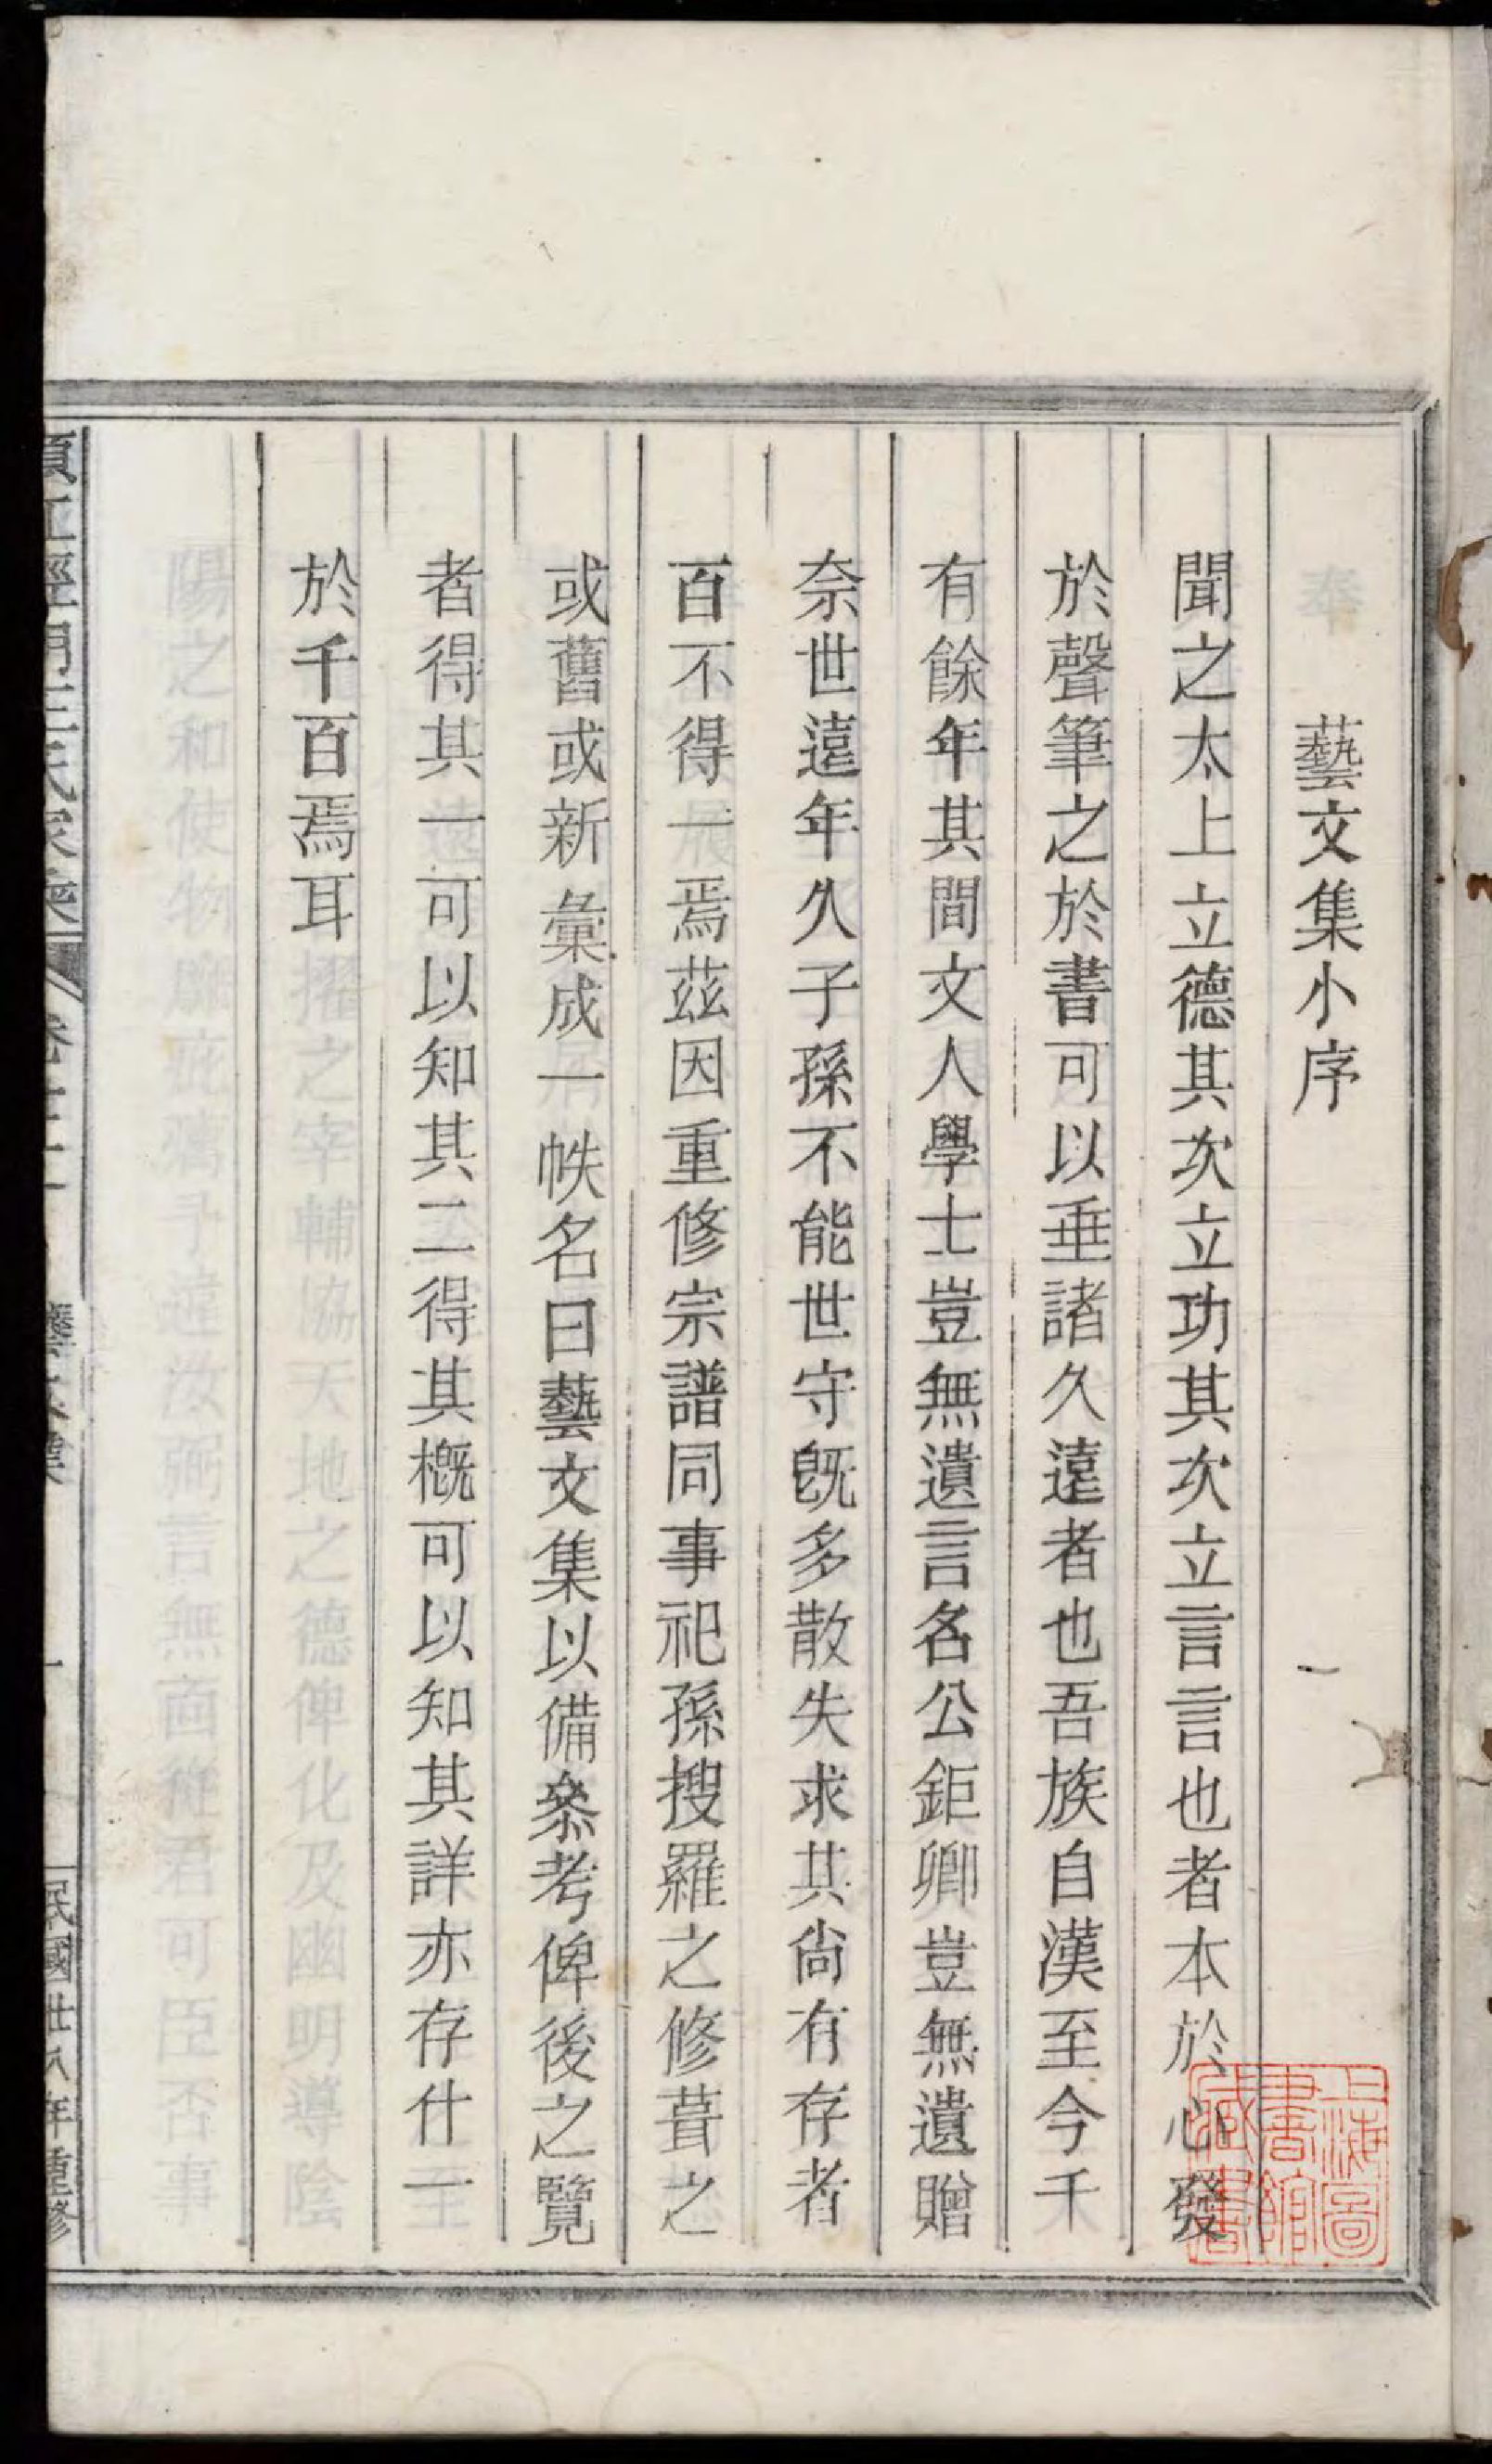 藝文集小序
聞之太上立德其次立功其次立言言也者本於心發
於聲筆之於書可以垂諸久遠者也吾族自漢至今千
有餘年其間文人學士豈無遺言名公鉅卿豈無遺贈
奈世遠年久子孫不能世守旣多散失求其尙有存者
百不得一焉茲因重修宗譜同事祀孫搜羅之修葺之
或舊或新彙成一帙名曰藝文集以備叅考俾後之覽
者得其一可以知其二得其槪可以知其詳亦存什一
於千百焉耳
民國卅八年重修
上海圖書館藏書